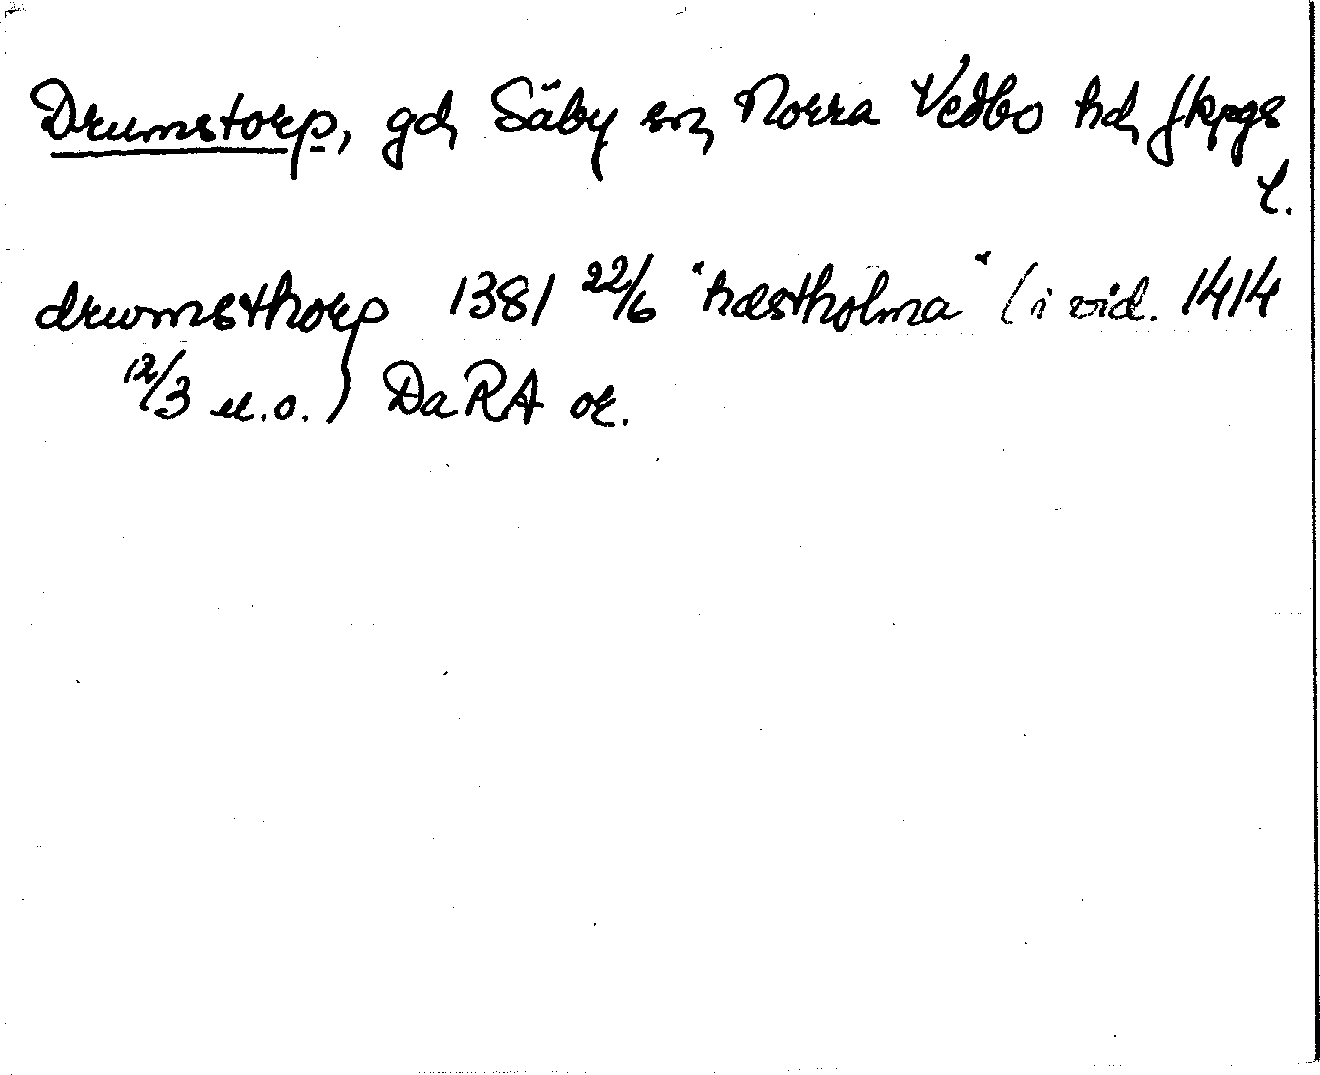 Drumstorp, gd, Säby sn, Norra Vedbo hd, Jkpgs
l.
drwmsthorp 1381 22/6 "hæstholma" (i vid. 1414
12/3 u.o.) DaRA or.